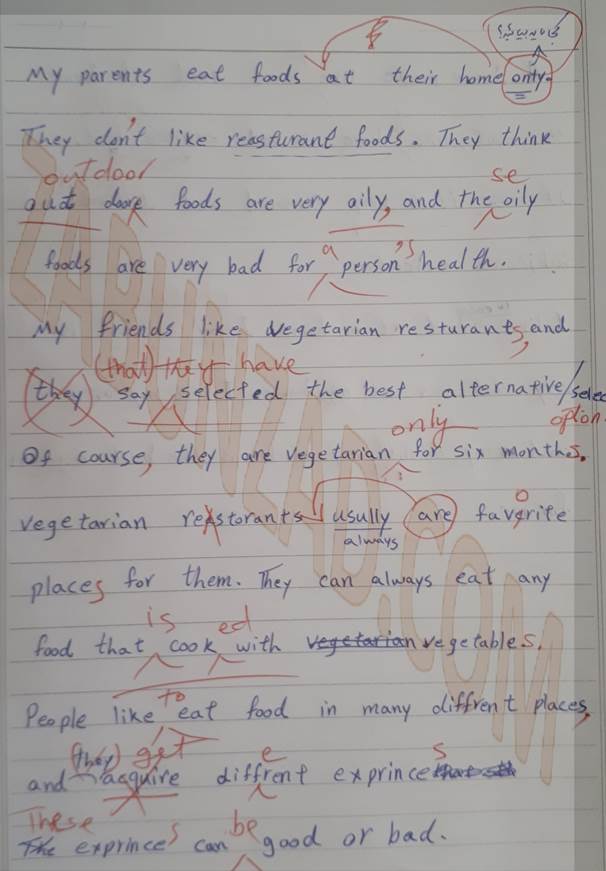 My parents eat foods at their home only.
They don't like reasturant foods. They think
outdoor se
out doore foods are very oily, and the oily
a 's
foods are very bad for person health.
My friends like vegetarian resturants, and
(that) they have
(they) say selected the best alternative/selec
only option.
Of course, they are vegetarian for six months.
vegetarian restorants usully are favorite
always
places for them. They can always eat any
is ed
food that cook with vegetarian vegetables.
to
People like eat food in many diffrent places,
(they) get e s
and acquire diffrent exprince
These s be
The exprince can good or bad.
ZABUNZAD.COM